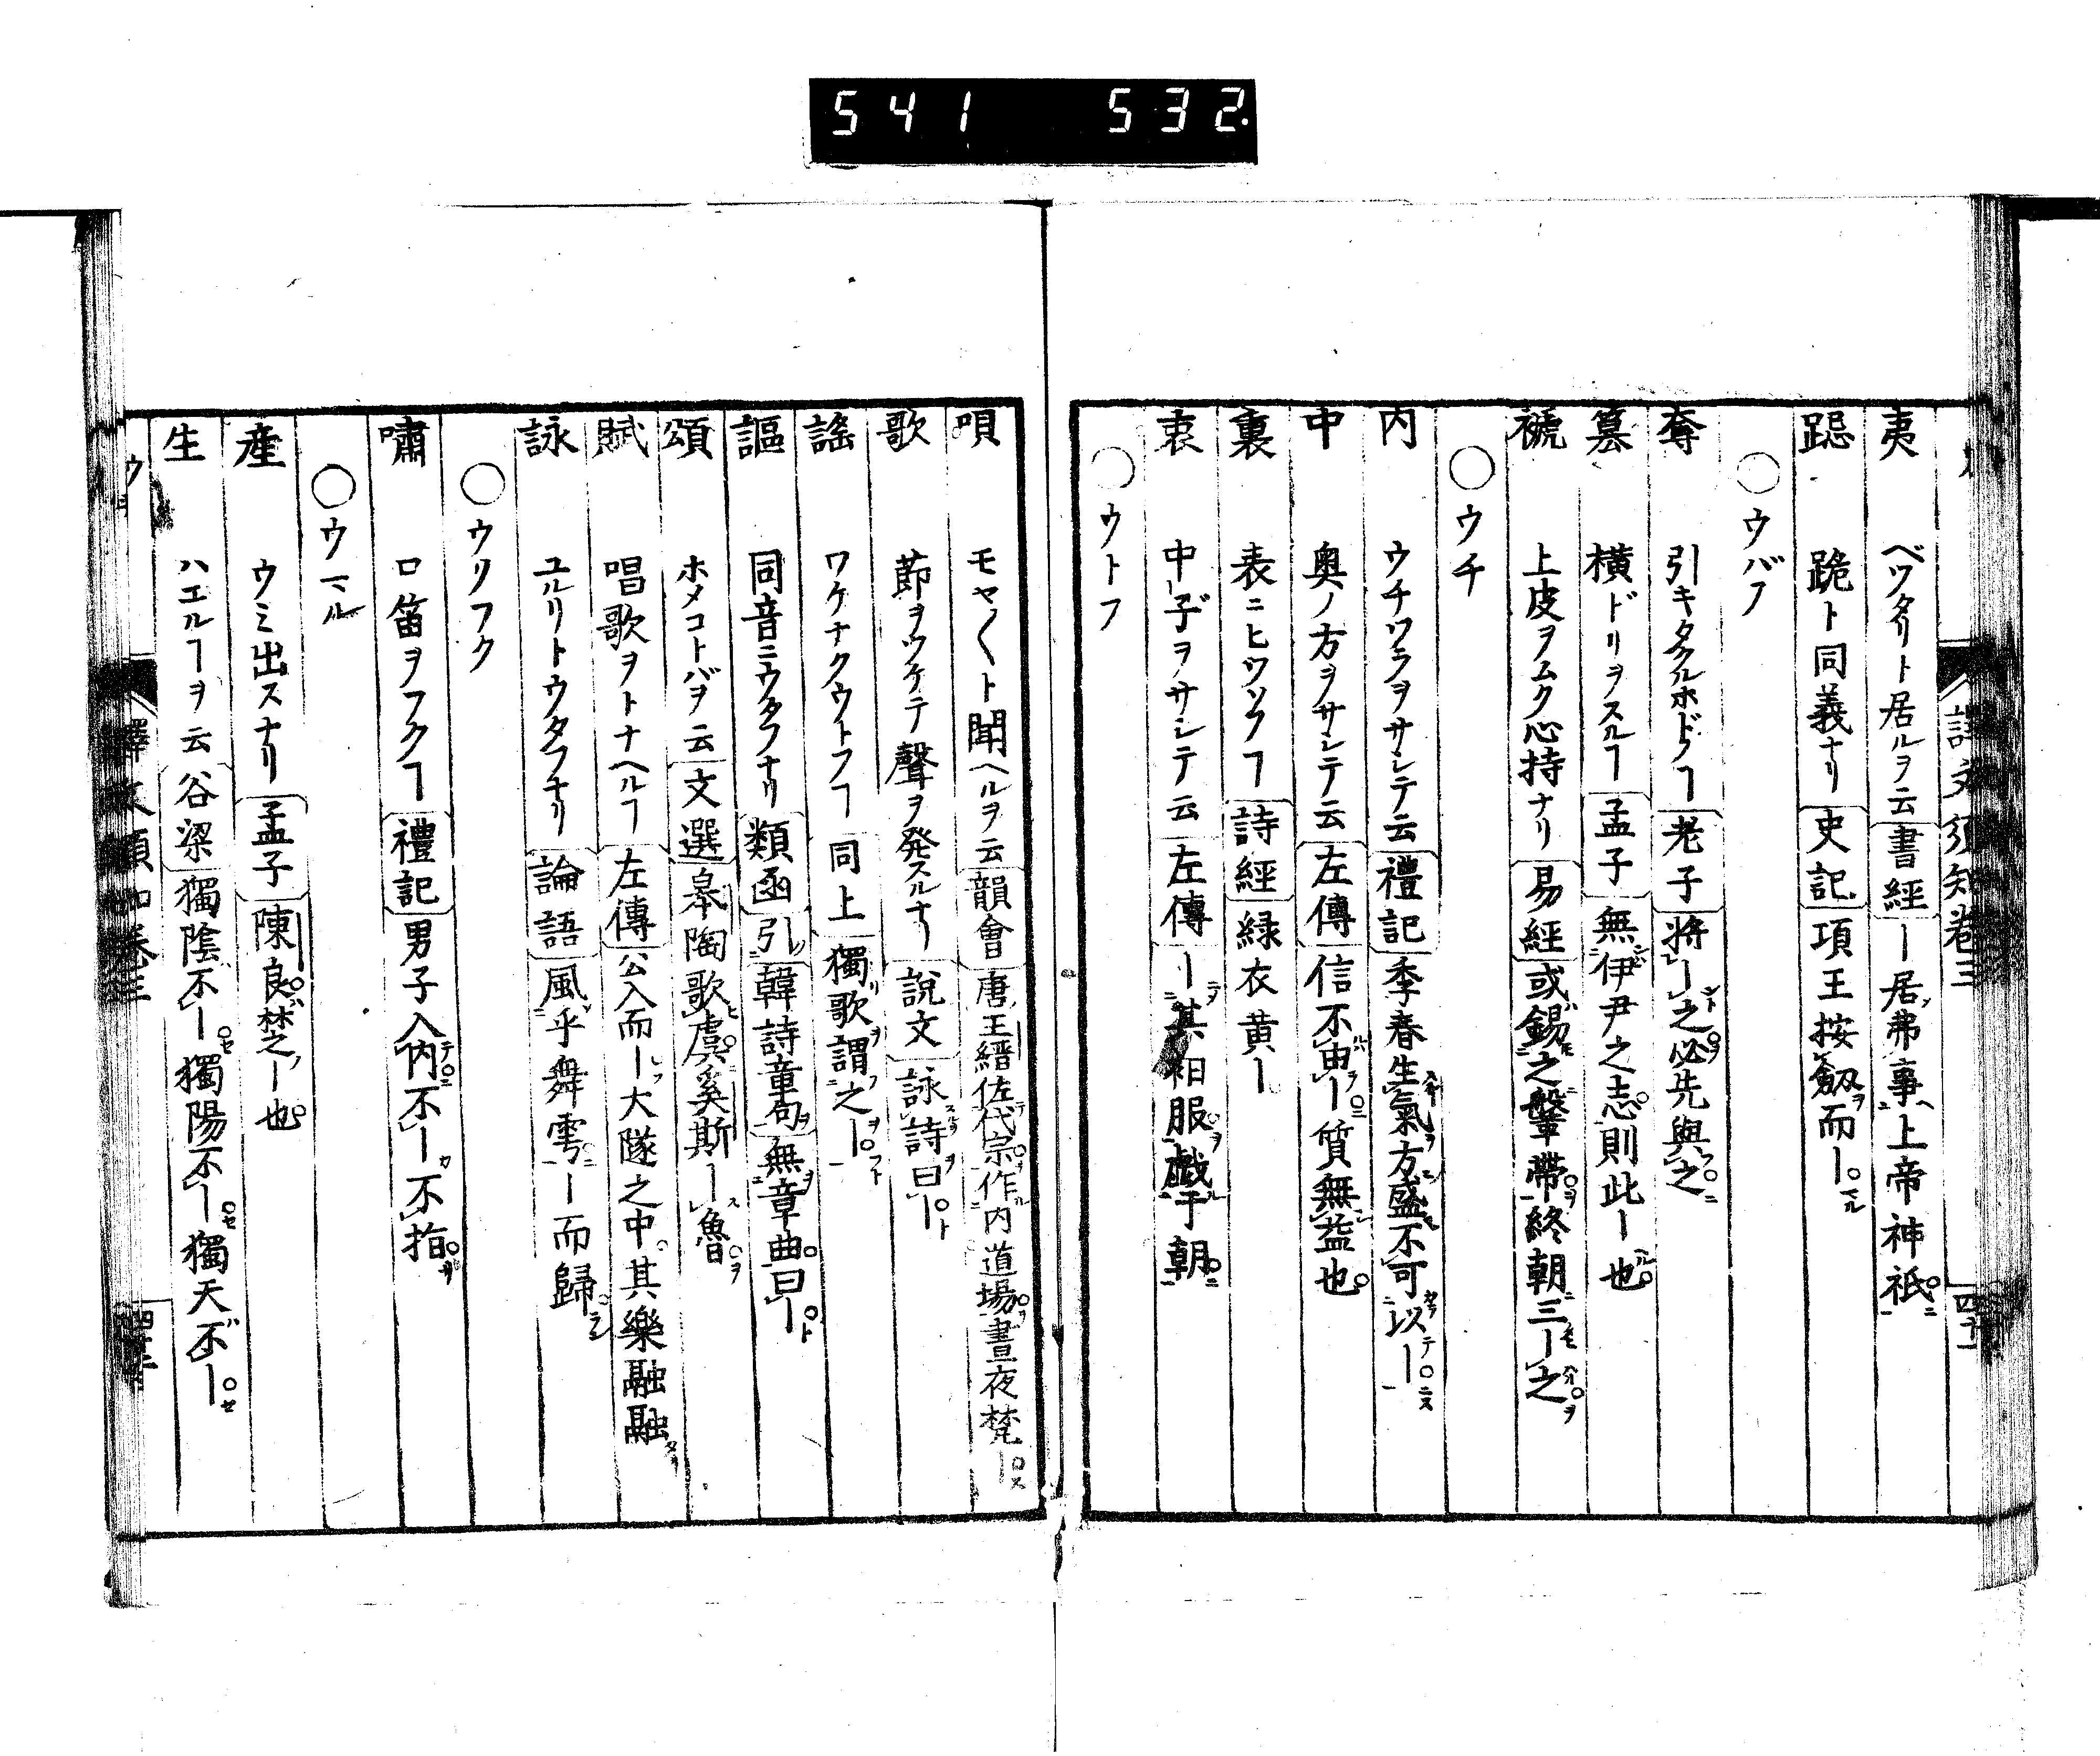 541 532.
譯文須知卷三 四十一
夷 ベツタリト居ルヲ云 書經 ー居弗事上帝神祇
跽 跪ト同義ナリ 史記 項王按劔而ー
○ウバフ
奪 引キタクルホドノヿ 老子 將ー之必先與之
簒 横ドリヲスルヿ 孟子 無伊尹之志則此ー也
褫 上皮ヲムク心持ナリ 易經 或錫之鞶帶終朝三ー之
○ウチ
内 ウチワラヲサシテ云 禮記 季春生氣方盛不可以ー
中 奥ノ方ヲサシテ云 左傳 信不由ー質無益也
裏 表ニヒツソフヿ 詩經 緑衣黄ー
衷 中子ヲサシテ云 左傳 ー其衵服戯于朝
○ウトフ
唄 モヤ〱ト聞ヘルヲ云 韻會 唐王縉佐代宗作内道場晝夜梵ー
歌 節ヲウケテ聲ヲ発スルナリ 說文 詠詩曰ー
謠 ワケナクウトフヿ 同上 獨歌謂之ー
謳 同音ニウタフナリ 類函 引 韓詩章句 無章曲曰ー
頌 ホメコトバヲ云 文選 皋陶歌虞奚斯ー魯
賦 唱歌ヲトナヘルヿ 左傳 公入而ー大隧之中其樂融融
詠 ユルリトウタフナリ 論語 風乎舞雩ー而歸
○ウソフク
嘯 口笛ヲフクヿ 禮記 男子入内不ー不指
○ウマル
產 ウミ出スナリ 孟子 陳良楚ー也
生 ハエルヿヲ云 谷梁 獨陰不ー獨陽不ー獨天不ー
譯文須知卷三 四十二